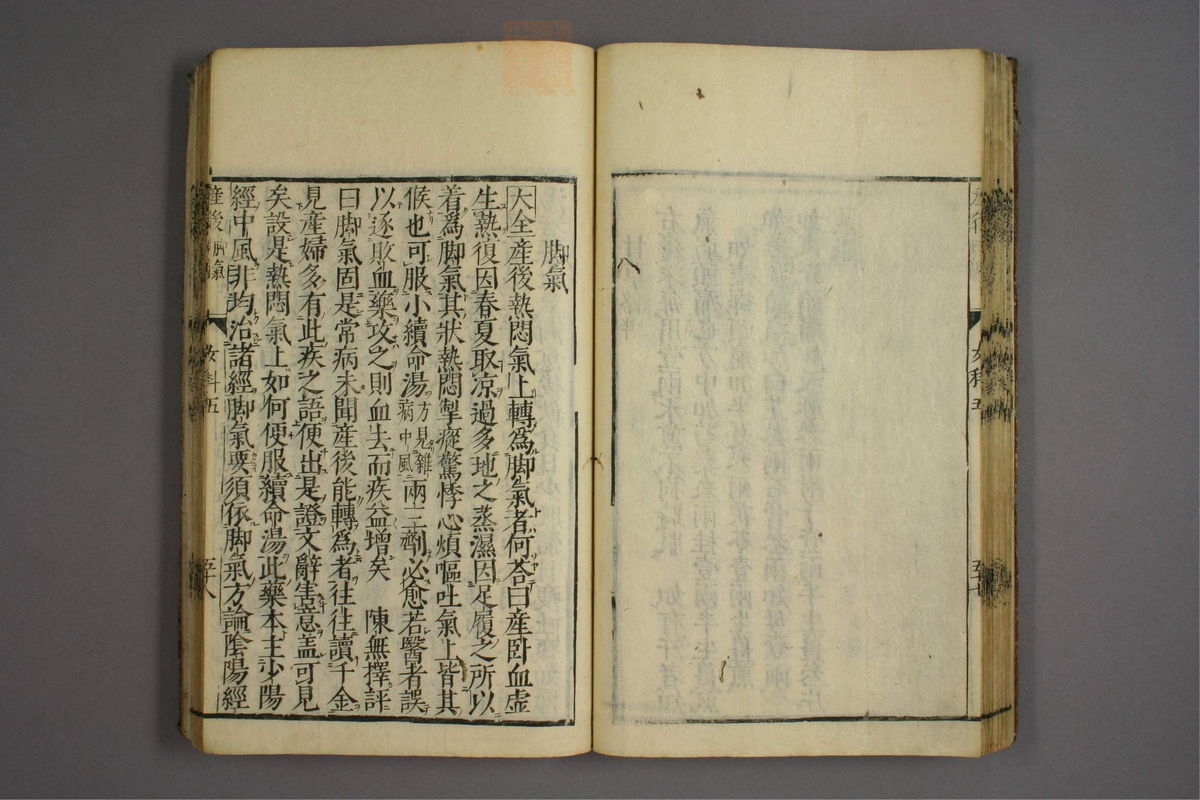 脚氣
大全産後熱悶氣上轉爲脚氣者何荅曰産卧血虚
生熱復因春夏取凉過多地之蒸濕因足履之所以
着爲脚氣其狀熱悶掣瘲驚悸心煩嘔吐氣上皆其
候也可服小續命湯方見雜病中風兩三劑必愈若醫者誤
以逐敗血藥攻之則血去而疾益增矣 陳無擇評
曰脚氣固是常病未聞産後能轉爲者往往讀千金
見産婦多有此疾之語便出是證文辭害意盖可見
矣設是熱悶氣上如何便服續命湯此藥本主少陽
經中風非均治諸經脚氣要須依脚氣方論陰陽經
産後 脚氣 女科五 五十八